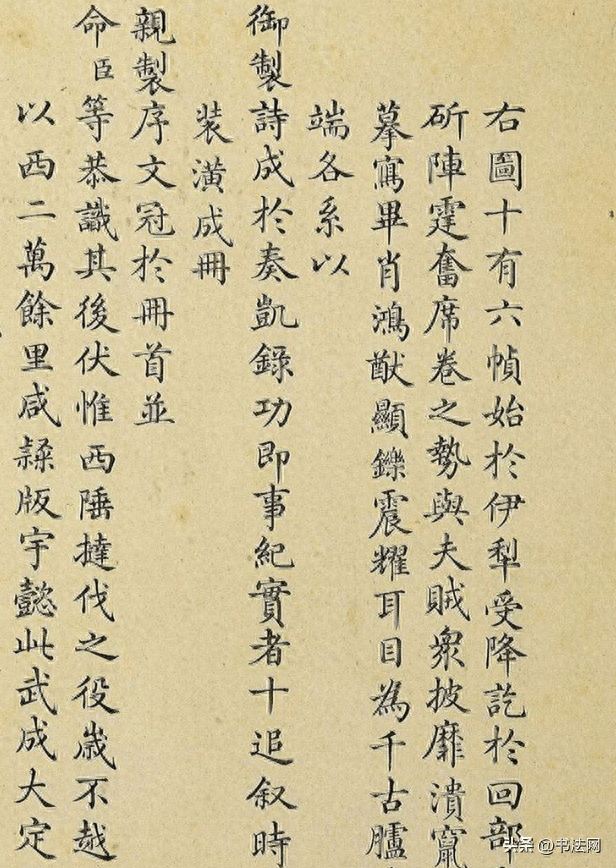 右圖十有六幀始於伊犁受降訖於回部
斫陣霆奮席卷之勢與夫賊衆披靡潰竄
摹寫畢肖鴻猷顯鑠震耀耳目為千古臚
端各系以
御製詩成於奏凱錄功即事紀實者十追叙時
装潢成冊
親製序文冠於冊首並
命臣等恭識其後伏惟西陲撻伐之役嵗不越
以西二萬餘里咸隸版宇懿此武成大定
头条 @书法网